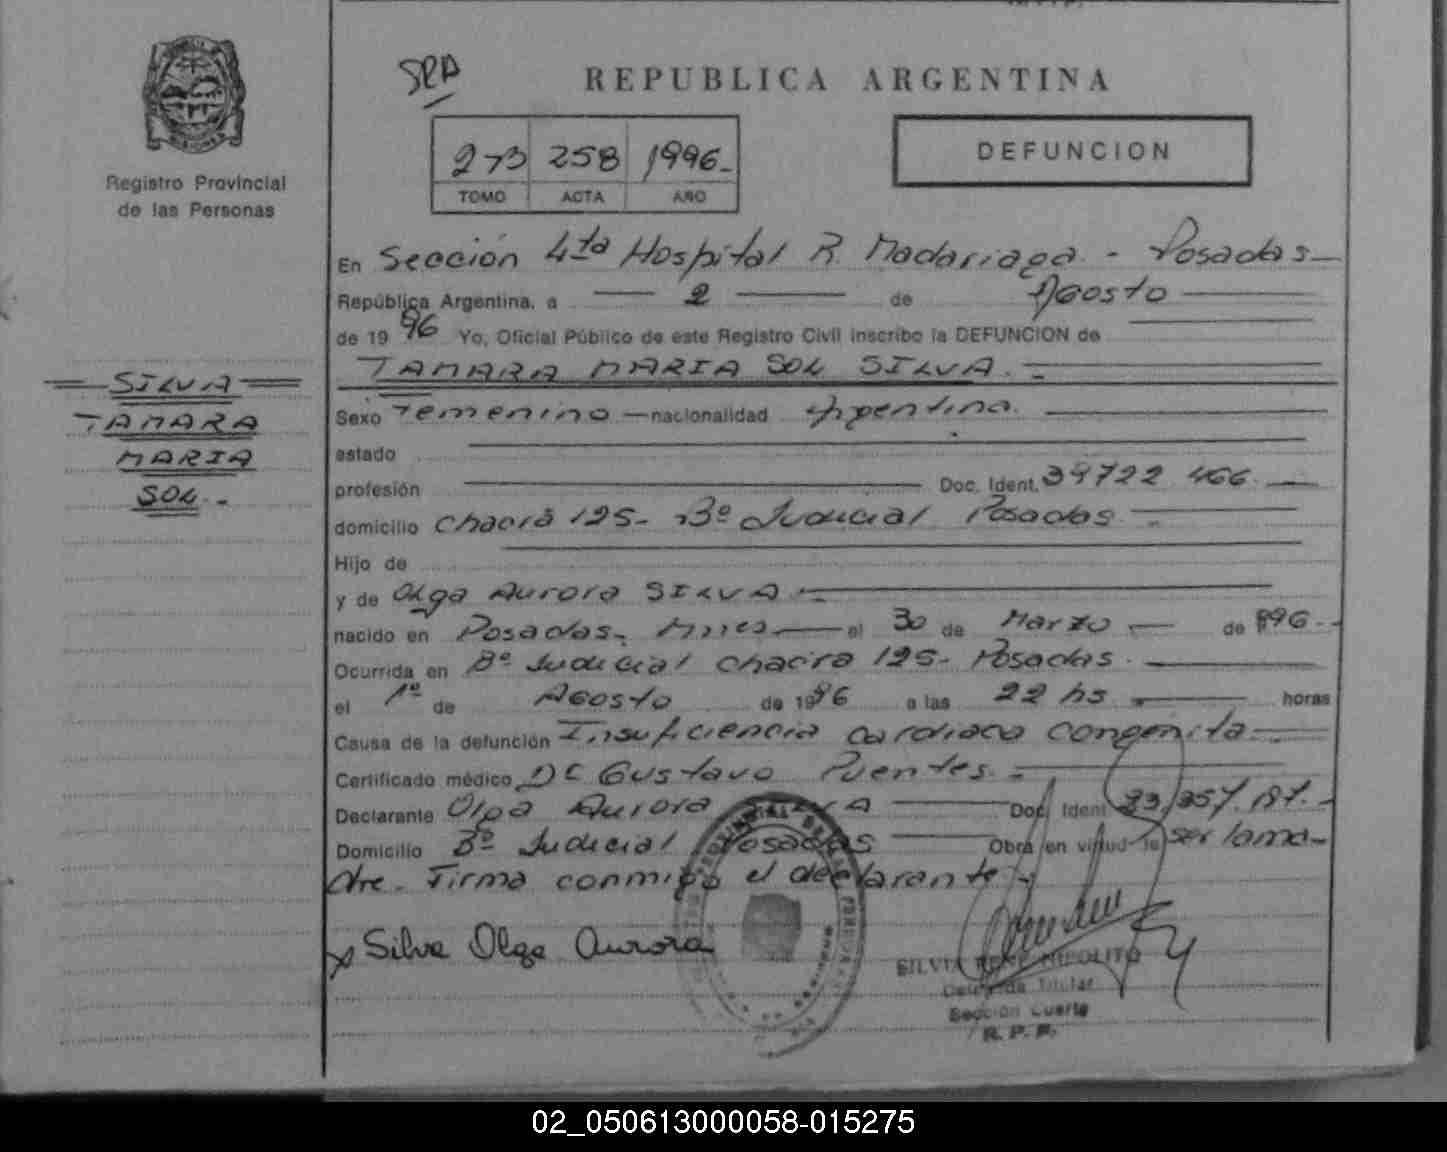 REPUBLICA ARGENTINA
DEFUNCION
273 258 1996.-
TOMO ACTA AÑO
Registro Provincial
de las Personas
SILVA
TAMARA
MARIA
SOL.-
En Sección 4ta Hospital R. Madariaga - Posadas
República Argentina, a 2 de Agosto
de 1996 Yo, Oficial Público de este Registro Civil inscribo la DEFUNCION de
TAMARA MARIA SOL SILVA.-
Sexo Femenino nacionalidad Argentina.
estado
profesión Doc. Ident. 39722 466.
domicilio Chacra 125- Bº Judicial Posadas.-
Hijo de
y de Olga Aurora SILVA.-
nacido en Posadas, Mnes el 30 de Marzo de 1996.-
Ocurrida en Bº Judicial Chacra 125- Posadas.
el 1º de Agosto de 1996 a las 22 hs. horas
Causa de la defunción Insuficiencia cardiaca congenita.-
Certificado médico Dr Gustavo Puentes.-
Declarante Olga Aurora Doc. Ident.
Domicilio Bº Judicial Posadas Obra en virtud de ser la ma-
dre. Firma conmigo el declarante.-
Silva Olga Aurora
HIPOLITO
Delegada Titular
Sección Cuarta
R. P. P.
02_050613000058-015275